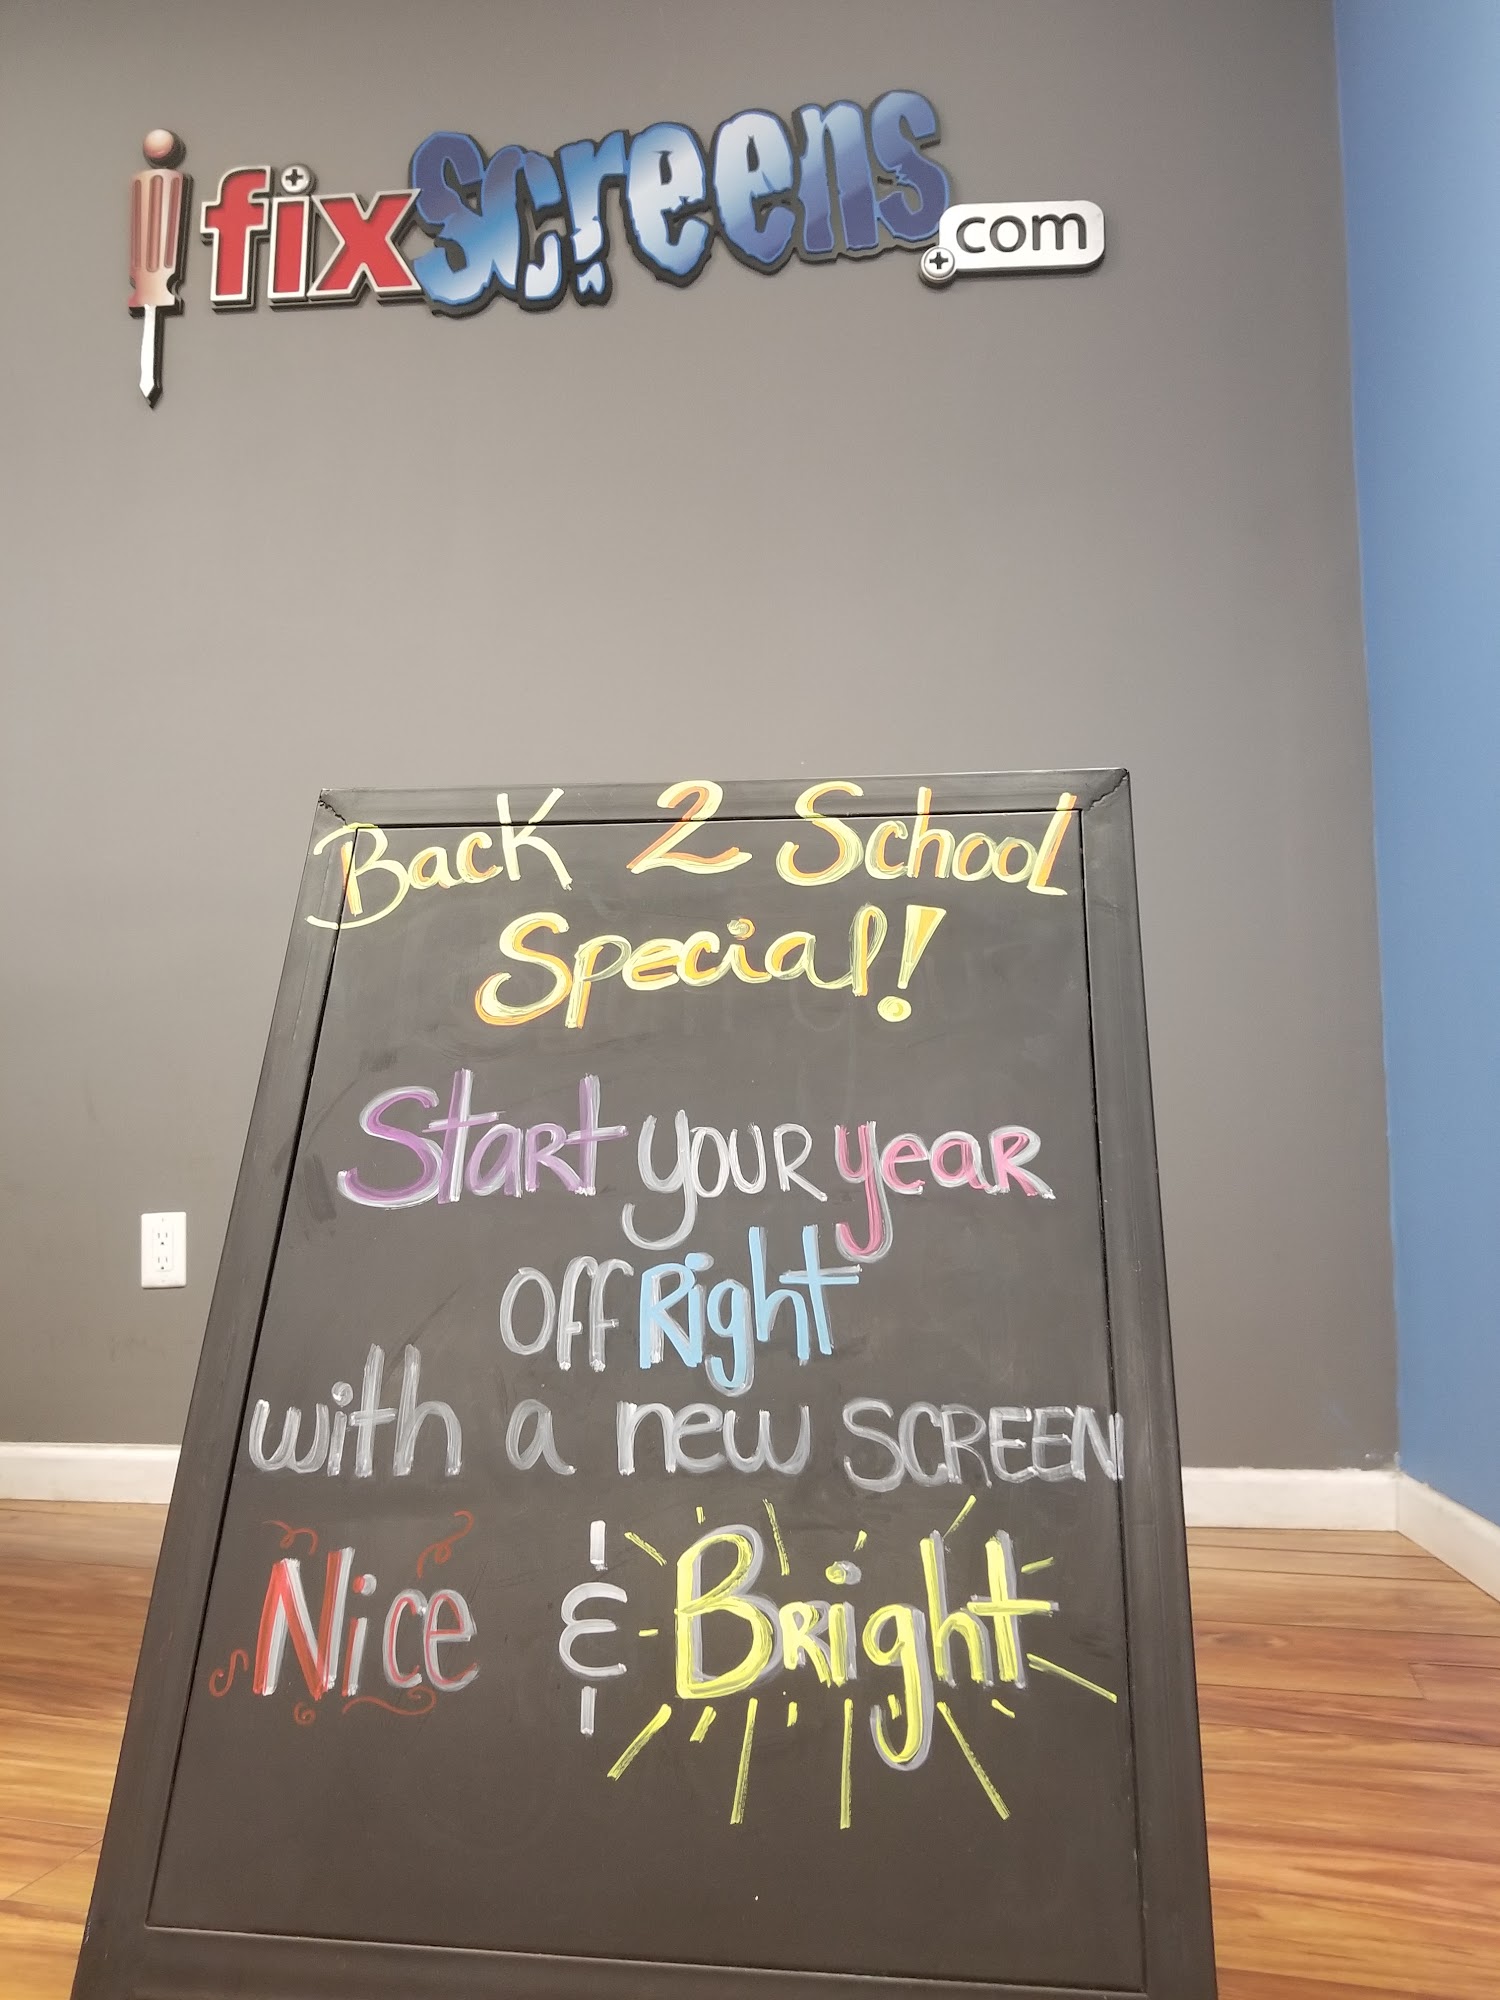 ifixscreens.com
Back 2 School
Special!
Start your year
off Right
with a new SCREEN
Nice & Bright